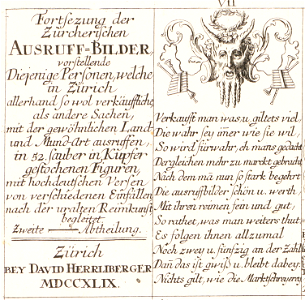 VII
Fortsezung der
Zürcherischen
AUSRUFF-BILDER
vorstellende
Diejenige Personen, welche
in Zürich
allerhand so wol verkäuffliche
als andere Sachen,
mit der gewöhnlichen Land
und Mund-Art ausruffen,
in 52 sauber in Kupfer
gestochenen Figuren,
mit hochdeutschen Versen
von verschiedenen Einfällen
nach der uralten Reimkunst
begleitet.
Zweite Abtheilung.
Zürich
BEY DAVID HERRLIBERGER
MDCCXLIX.
Verkaufst man was, u. giltets viel
Die wahr sey jmer wie sie wil,
So wird fürwahr, eh mans gedacht
Dergleichen mehr zu markt gebracht
Nach dem mã nun so stark begehrt
Die ausrufbilder schön u. werth
Mit ihren reimen fein und gut,
So rathet, was man weiters thut.
Es folgen ihnen allzumal
Noch zwey u. fünfzig an der Zahl.
Dañ das ist gwiß u. bleibt dabey,
Nichts gilt, wie die Marktschreyerei